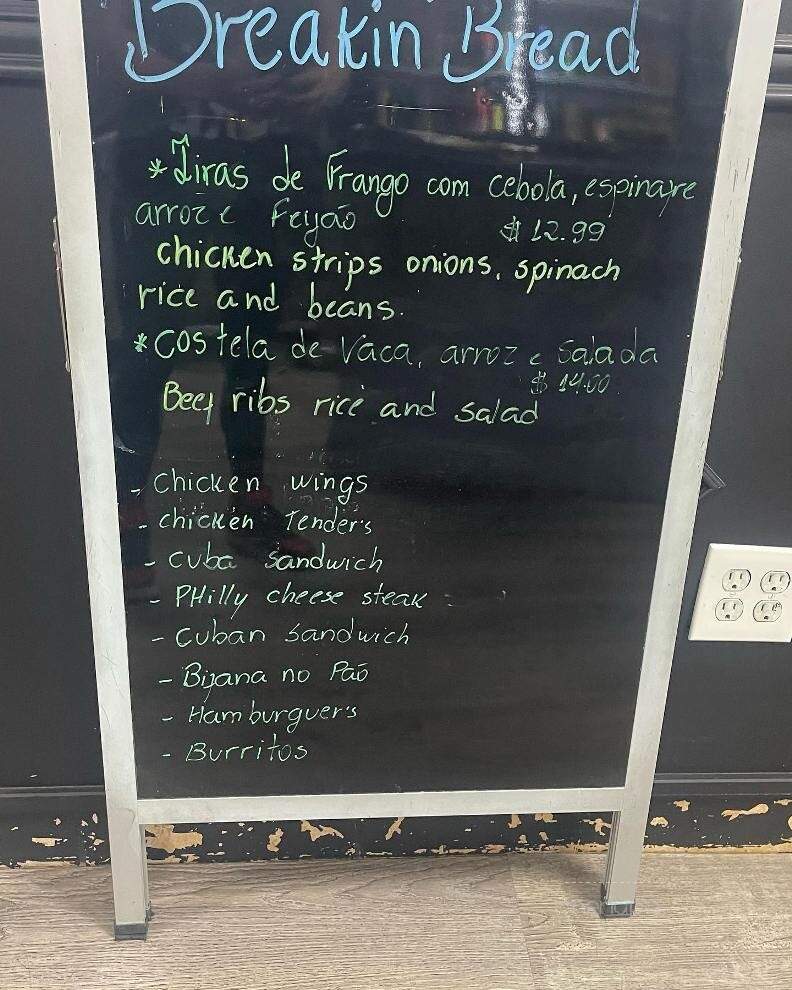 Breakin' Bread
*Tiras de Frango com cebola, espinafre
arroz e Feijão $ 12.99
chicken strips onions, spinach
rice and beans.
*Costela de Vaca, arroz e Salada
$ 14.00
Beef ribs rice and salad
- Chicken wings
- chicken Tenders
- Cuba sandwich
- PHilly cheese steak
- Cuban Sandwich
- Bifana no Pão
- Hamburguer's
- Burritos